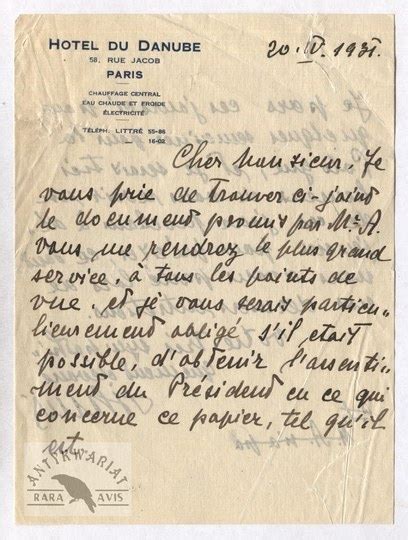 HOTEL DU DANUBE
58, RUE JACOB
PARIS
CHAUFFAGE CENTRAL
EAU CHAUDE ET FROIDE
ÉLECTRICITÉ
TÉLÉPH. LITTRÉ 55-86
16-02
20. IV. 1931.
Cher Monsieur. Je
vous prie de trouver ci-joint
le document promis par Mr. A.
vous me rendrez le plus grand
service, à tous les points de
vue. et je vous serais particu„
lièrement obligé, s'il était
possible, d'obtenir l'assenti„
ment du Président en ce qui
concerne ce papier, tel qu'il
est.
ANTYKWARIAT
RARA AVIS